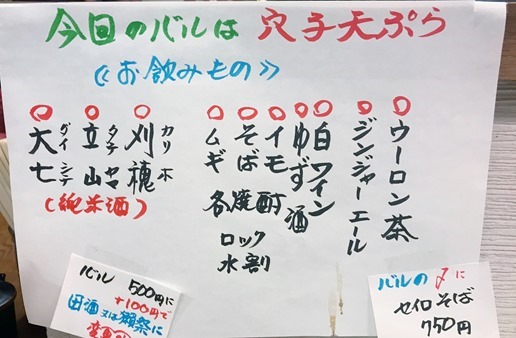 今回のバルは 穴子天ぷら
《お飲みもの》
○ウーロン茶
○ジンジャーエール
○白ワイン
○ゆず酒
○イモ
○そば
○ムギ
各焼酎
ロック
水割
○刈穂 カリホ
○立山 タテヤマ
○大七 ダイシチ
(純米酒)
バル 500円に
+100円で
田酒又は獺祭に
変更
バルの〆に
セイロそば
750円